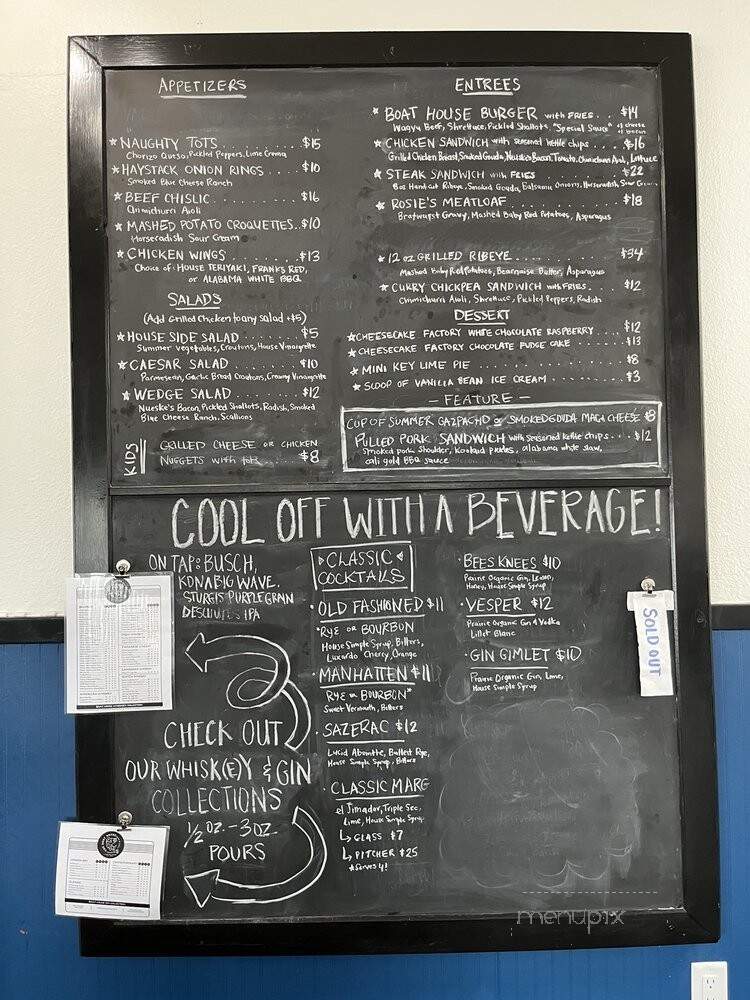 APPETIZERS
★ NAUGHTY TOTS . . . . . . . . . $15
Chorizo Queso, Pickled Peppers, Lime Crema
★ HAYSTACK ONION RINGS . . . . . . $10
Smoked Blue Cheese Ranch
★ BEEF CHISLIC . . . . . . . . . $16
Chimichurri Aioli
★ MASHED POTATO CROQUETTES. . $10
Horseradish Sour Cream
★ CHICKEN WINGS . . . . . . . . $13
Choice of: HOUSE TERIYAKI, FRANKS RED,
or ALABAMA WHITE BBQ
SALADS
(Add Grilled Chicken to any salad +$5)
★ HOUSE SIDE SALAD . . . . . . . . $5
Summer Vegetables, Croutons, House Vinaigrette
★ CAESAR SALAD . . . . . . . . $10
Parmesean, Garlic Bread Croutons, Creamy Vinaigrette
★ WEDGE SALAD . . . . . . . . $12
Nueske's Bacon, Pickled Shallots, Radish, Smoked
Blue Cheese Ranch, Scallions
KIDS
GRILLED CHEESE OR CHICKEN
NUGGETS with tots . . . . . . $8
ENTREES
★ BOAT HOUSE BURGER with FRIES . . $14
Wagyu Beef, Shrettuce, Pickled Shallots, "Special Sauce"
★ CHICKEN SANDWICH with seasoned kettle chips . . . $16
Grilled Chicken Breast, Smoked Gouda, Nueske's Bacon, Tomato, Chimichurri Aioli, Lettuce
★ STEAK SANDWICH with FRIES . . . . . . $22
8oz Hand Cut Ribeye, Smoked Gouda, Balsamic Onions, Horseradish, Sour
★ ROSIE'S MEATLOAF . . . . . . . . $18
Bratwurst Gravy, Mashed Baby Red Potatoes, Asparagus
★ 12 oz GRILLED RIBEYE . . . . . . . . $34
Mashed Baby Red Potatoes, Bearnaise Butter, Asparagus
★ CURRY CHICKPEA SANDWICH with FRIES . . . . $12
Chimichurri Aioli, Shrettuce, Pickled Peppers, Radish
DESSERT
★ CHEESECAKE FACTORY WHITE CHOCOLATE RASPBERRY . . . . $12
★ CHEESECAKE FACTORY CHOCOLATE FUDGE CAKE . . . . $13
★ MINI KEY LIME PIE . . . . . . . . $8
★ SCOOP OF VANILLA BEAN ICE CREAM . . . . . . $3
— FEATURE —
CUP OF SUMMER GAZPACHO or SMOKED GOUDA MAC & CHEESE $8
PULLED PORK SANDWICH with seasoned kettle chips . . . $12
Smoked pork shoulder, Koolaid pickles, alabama white slaw,
cali gold BBQ sauce
COOL OFF WITH A BEVERAGE!
ON TAP: BUSCH,
KONA BIG WAVE,
STURGIS PURPLE GRAN
DESCHUTES IPA
CHECK OUT
OUR WHISK(E)Y & GIN
COLLECTIONS
1/2 OZ. - 3 OZ.
POURS
CLASSIC
COCKTAILS
· OLD FASHIONED $11
·RYE OR BOURBON
House Simple Syrup, Bitters,
Luxardo Cherry, Orange
· MANHATTEN $11
RYE or BOURBON*
Sweet Vermouth, Bitters
· SAZERAC $12
Lucid Absinthe, Bulleit Rye,
House Simple Syrup, Bitters
· CLASSIC MARG
el Jimador, Triple Sec,
Lime, House Simple Syrup
↳ GLASS $7
↳ PITCHER $25
*Serves 4!
· BEES KNEES $10
Prairie Organic Gin, Lemon,
Honey, House Simple Syrup
· VESPER $12
Prairie Organic Gin & Vodka
Lillet Blanc
· GIN GIMLET $10
Prairie Organic Gin, Lime,
House Simple Syrup
SOLD OUT
menupix